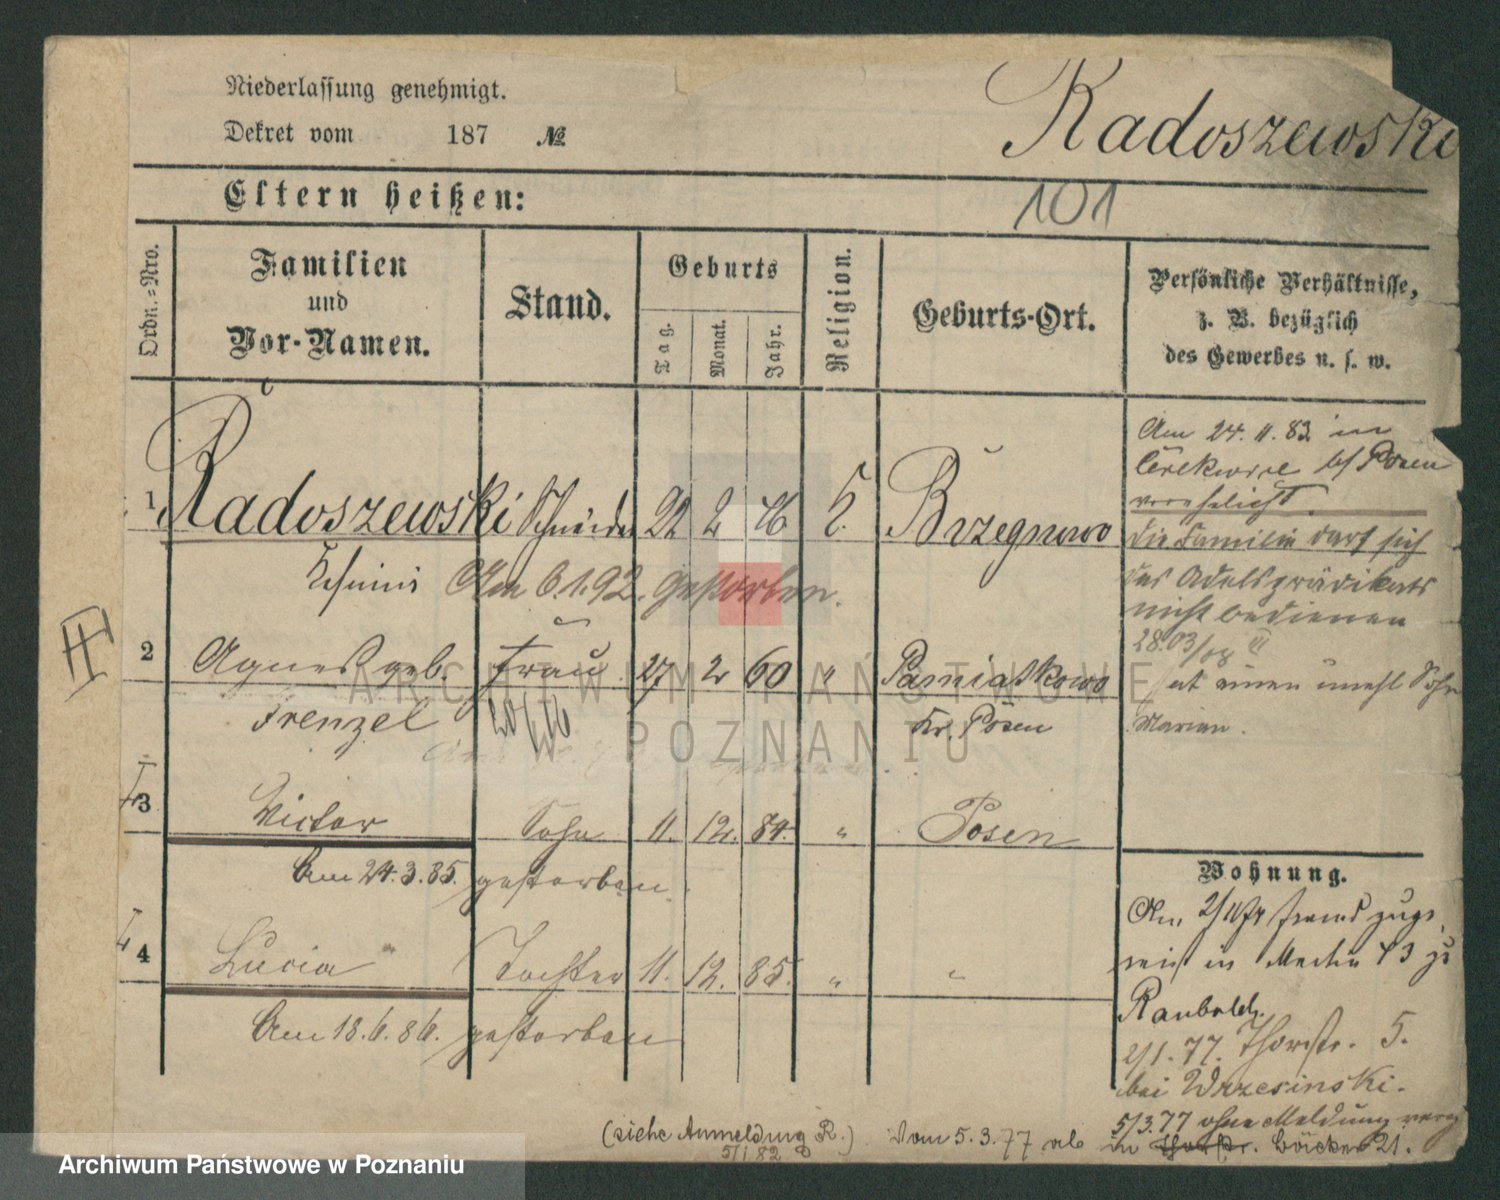 Niederlassung genehmigt.
Dekret vom 187 №
Radoszewski
Eltern heißen:
101
Ordn.=Nro.
Familien
und
Vor-Namen.
Stand.
Geburts
Tag.
Monat.
Jahr.
Religion.
Geburts-Ort.
Persönliche Verhältnisse,
z. B. bezüglich
des Gewerbes u. s. w.
1 Radoszewski Schneider 22 2 Brzegnowo
Am 6.1.92. gestorben.
2 Agnes geb. Frau 27 2 60 " Pamiatkowo
Frenzel Kr. Posen
3 Victor Sohn 11. 12. 84. " Posen
Am 24.3.85. gestorben.
4 Lucia Tochter 11. 12. 85. " "
Am 18.6.86. gestorben
Am 24.11.83 in
b/ Posen
verehelicht.
Die Familie darf sich
des Adelsprädikats
nicht bedienen
28.03
hat einen unehl Sohn
Marian.
Wohnung.
Am
2/1.77. Thorstr. 5.
bei Wrzesinski.
5/3.77 ohne Meldung
(siehe Anmeldung R.) Vom 5.3.77 ab in Thorstr. Böcker 21.
5/1 82
ARCHIWUM PAŃSTWOWE
W POZNANIU
Archiwum Państwowe w Poznaniu